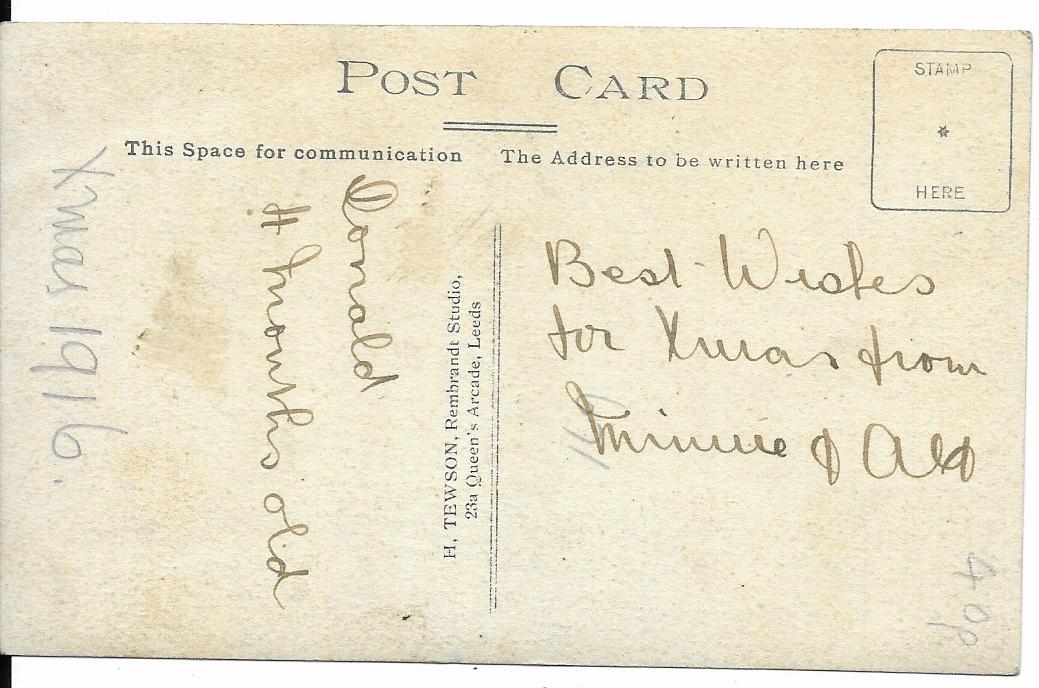 POST CARD
This Space for communication
The Address to be written here
STAMP
*
HERE
Xmas 1916.
Donald
4 months old
H. TEWSON, Rembrandt Studio,
23a Queen's Arcade, Leeds
Best Wishes
for Xmas from
Minnie & Alf
40p